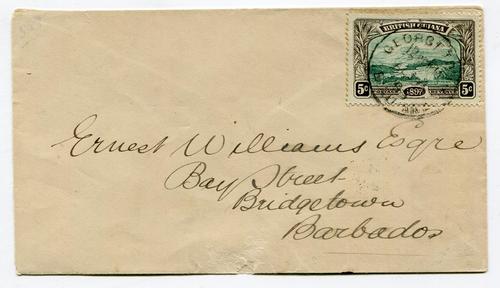 BRITISH GUIANA
GEORGET
5c 1897 5c
Ernest Williams Esqre
Bay Street
Bridgetown
Barbados